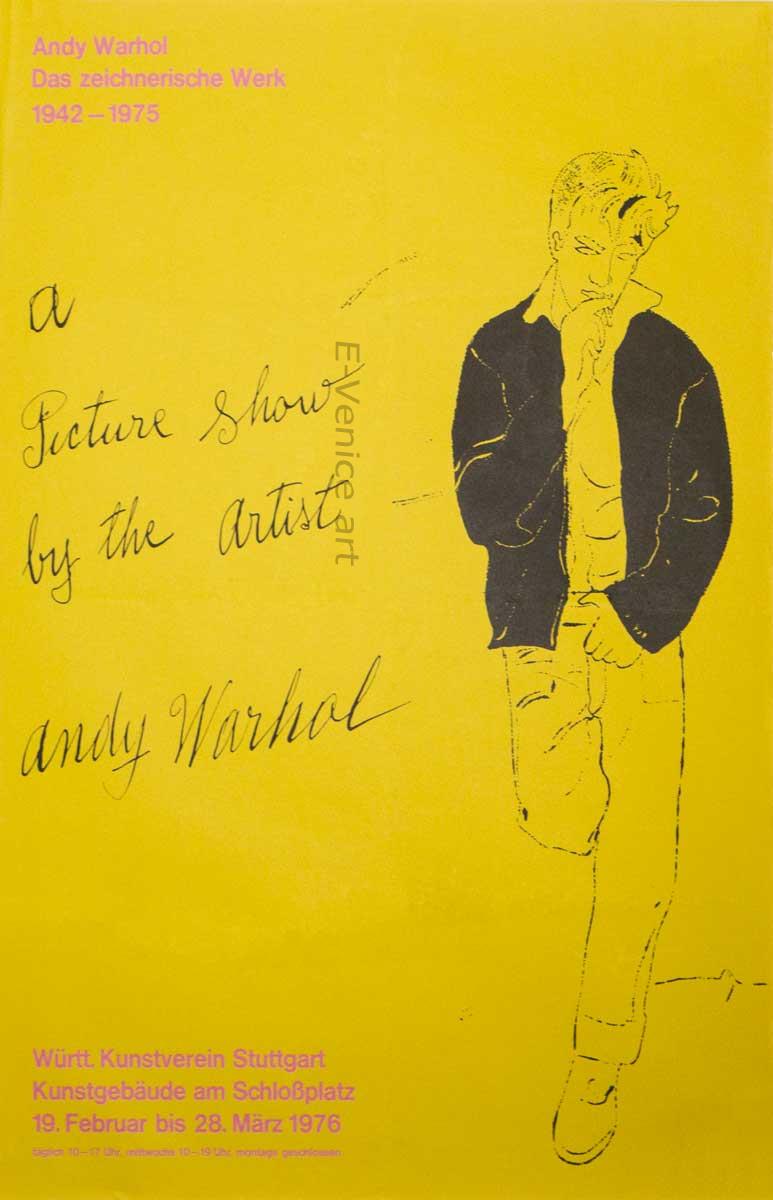 Andy Warhol
Das zeichnerische Werk
1942 – 1975
a
Picture show
by the artist
andy Warhol
E-Venice art
Württ. Kunstverein Stuttgart
Kunstgebäude am Schloßplatz
19. Februar bis 28. März 1976
täglich 10–17 Uhr, mittwochs 10–19 Uhr, montags geschlossen